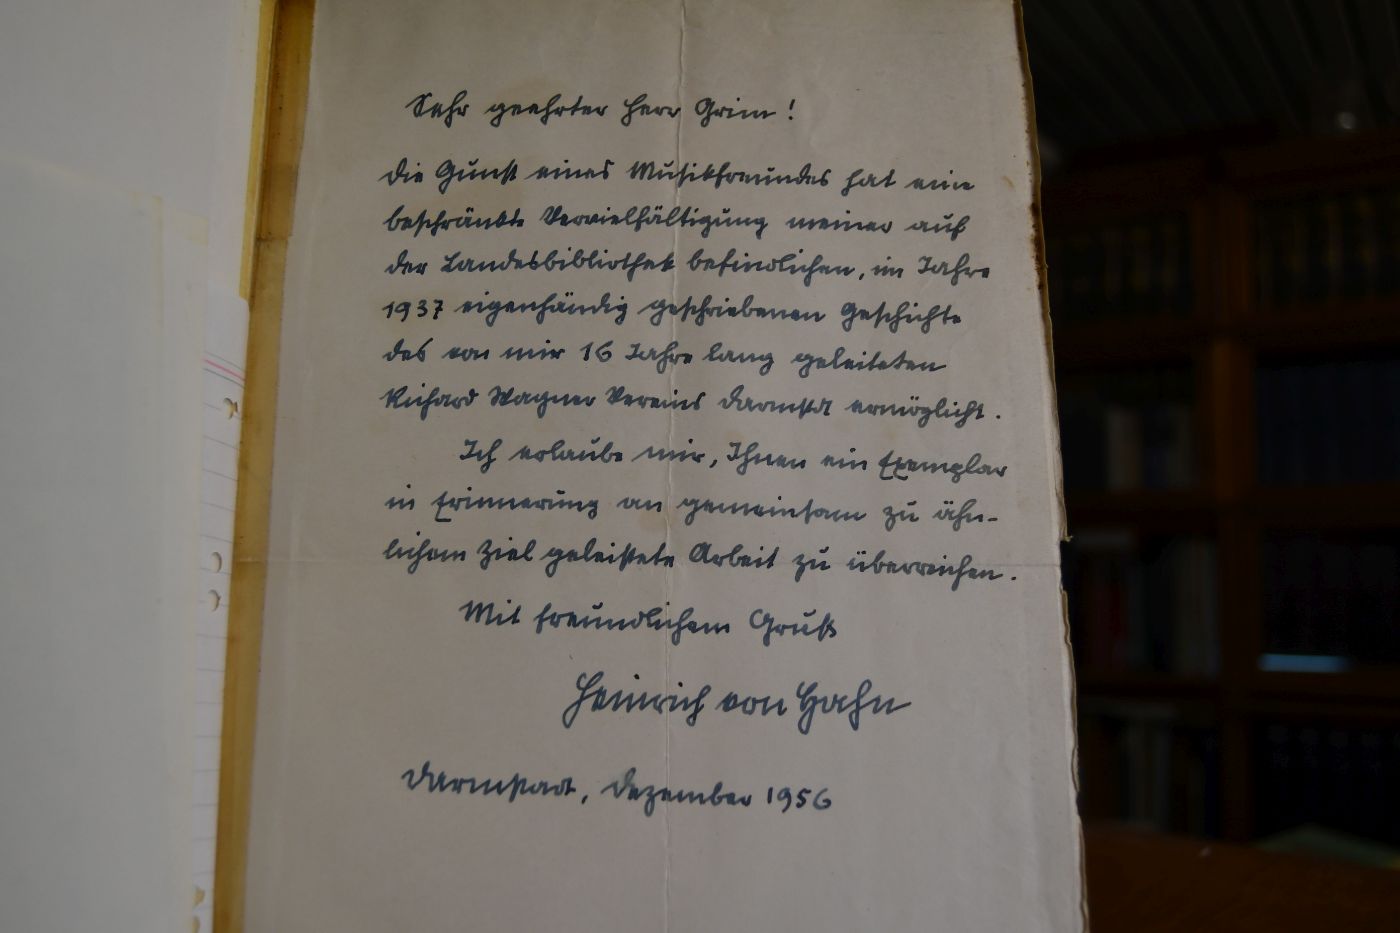 Sehr geehrter Herr Grim!
Die Gunst eines Musikfreundes hat eine
beschränkte Vervielfältigung meiner auf
der Landesbibliothek befindlichen, im Jahre
1937 eigenhändig geschriebenen Geschichte
des von mir 16 Jahre lang geleiteten
Richard Wagner Vereins Darmstadt ermöglicht.
Ich erlaube mir, Ihnen ein Exemplar
in Erinnerung an gemeinsam zu ähn-
lichem Ziel geleistete Arbeit zu überreichen.
Mit freundlichem Gruß
Heinrich von Hahn
Darmstadt, Dezember 1956